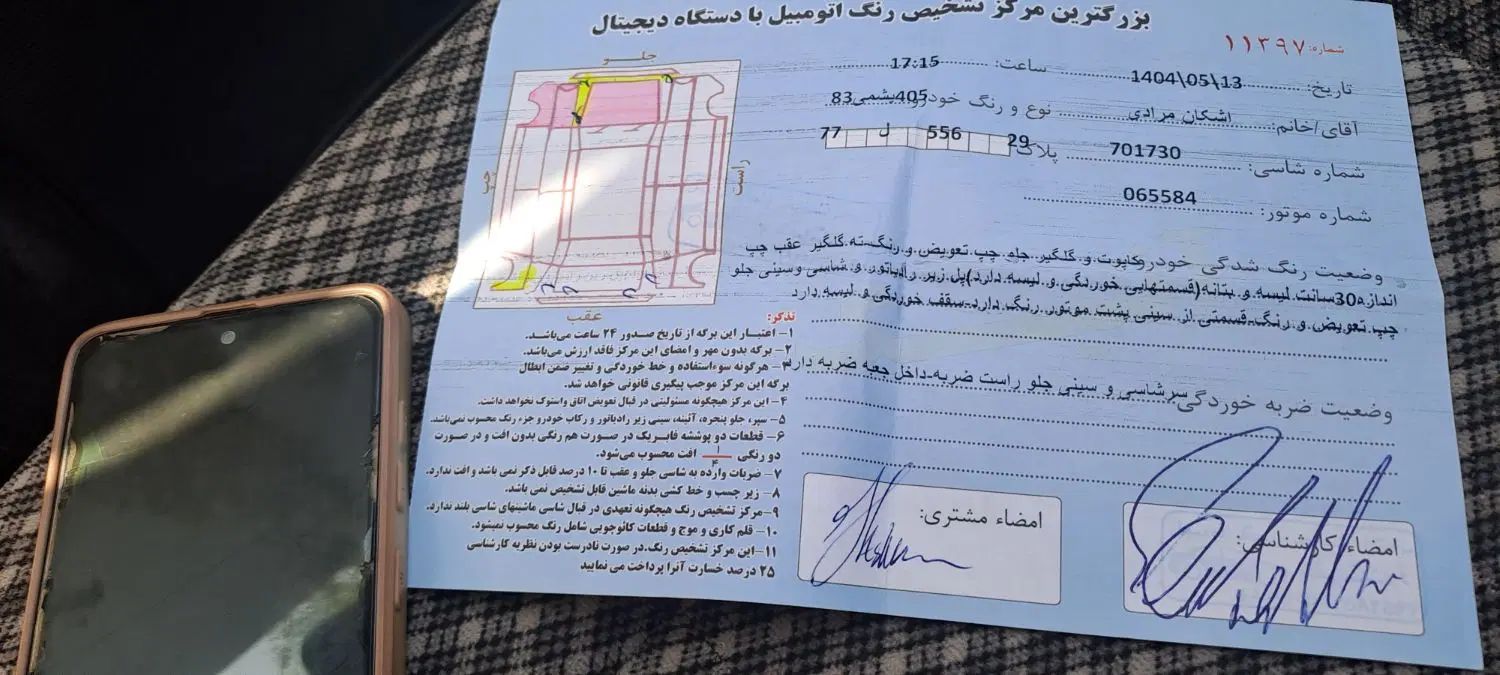 بزرگترین مرکز تشخیص رنگ اتومبیل با دستگاه دیجیتال
شماره: ۱۱۳۹۷
تاریخ: 1404\05\13 ساعت: 17:15
آقای/خانم: اشکان مرادی نوع و رنگ خودرو 405یشمی83
شماره شاسی: 701730 پلاک 29 556 ل 77
شماره موتور: 065584
جلو
راست
چپ
عقب
وضعیت رنگ شدگی خودرو:کاپوت و گلگیر جلو چپ تعویض و رنگ-ته گلگیر عقب چپ
اندازه30سانت لیسه و بتانه(قسمتهایی خوردگی و لیسه دارد)پل زیر رادیاتور و شاسی وسینی جلو
چپ تعویض و رنگ-قسمتی از سینی پشت موتور رنگ دارد-سقف خوردگی و لیسه دارد
وضعیت ضربه خوردگی سرشاسی و سینی جلو راست ضربه-داخل جعبه ضربه دارد
تذکر:
۱- اعتبار این برگه از تاریخ صدور ۲۴ ساعت می‌باشد.
۲- برگه بدون مهر و امضای این مرکز فاقد ارزش می‌باشد.
۳- هرگونه سوءاستفاده و خط خوردگی و تغییر ضمن ابطال
برگه این مرکز موجب پیگیری قانونی خواهد شد.
۴- این مرکز هیچگونه مسئولیتی در قبال تعویض اتاق واستوک نخواهد داشت.
۵- سپر، جلو پنجره، آئینه، سینی زیر رادیاتور و رکاب خودرو جزء رنگ محسوب نمی‌باشد.
۶- قطعات دو پوششه فابریک در صورت هم رنگی بدون افت و در صورت
دو رنگی ۱/۴ افت محسوب می‌شود.
۷- ضربات وارده به شاسی جلو و عقب تا ۱۰ درصد قابل ذکر نمی باشد و افت ندارد.
۸- زیر چسب و خط کشی بدنه ماشین قابل تشخیص نمی باشد.
۹- مرکز تشخیص رنگ هیچگونه تعهدی در قبال شاسی ماشینهای شاسی بلند ندارد.
۱۰- قلم کاری و موج و قطعات کائوچویی شامل رنگ محسوب نمیشود.
۱۱- این مرکز تشخیص رنگ، در صورت نادرست بودن نظریه کارشناسی
۲۵ درصد خسارت آنرا پرداخت می نمایید
امضاء مشتری:
امضاء کارشناسی: